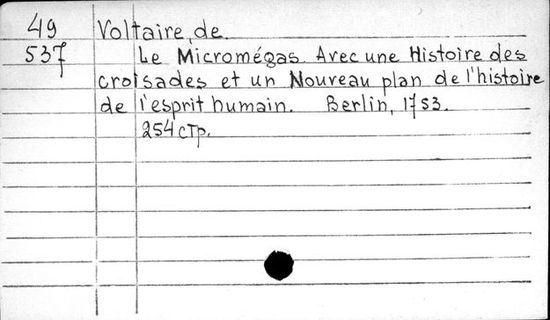 49 Voltaire, de.
537 Le Micromégas. Avec une Histoire des
croisades et un Nouveau plan de l'histoire
de l'esprit humain. Berlin, 1753.
254 стр.